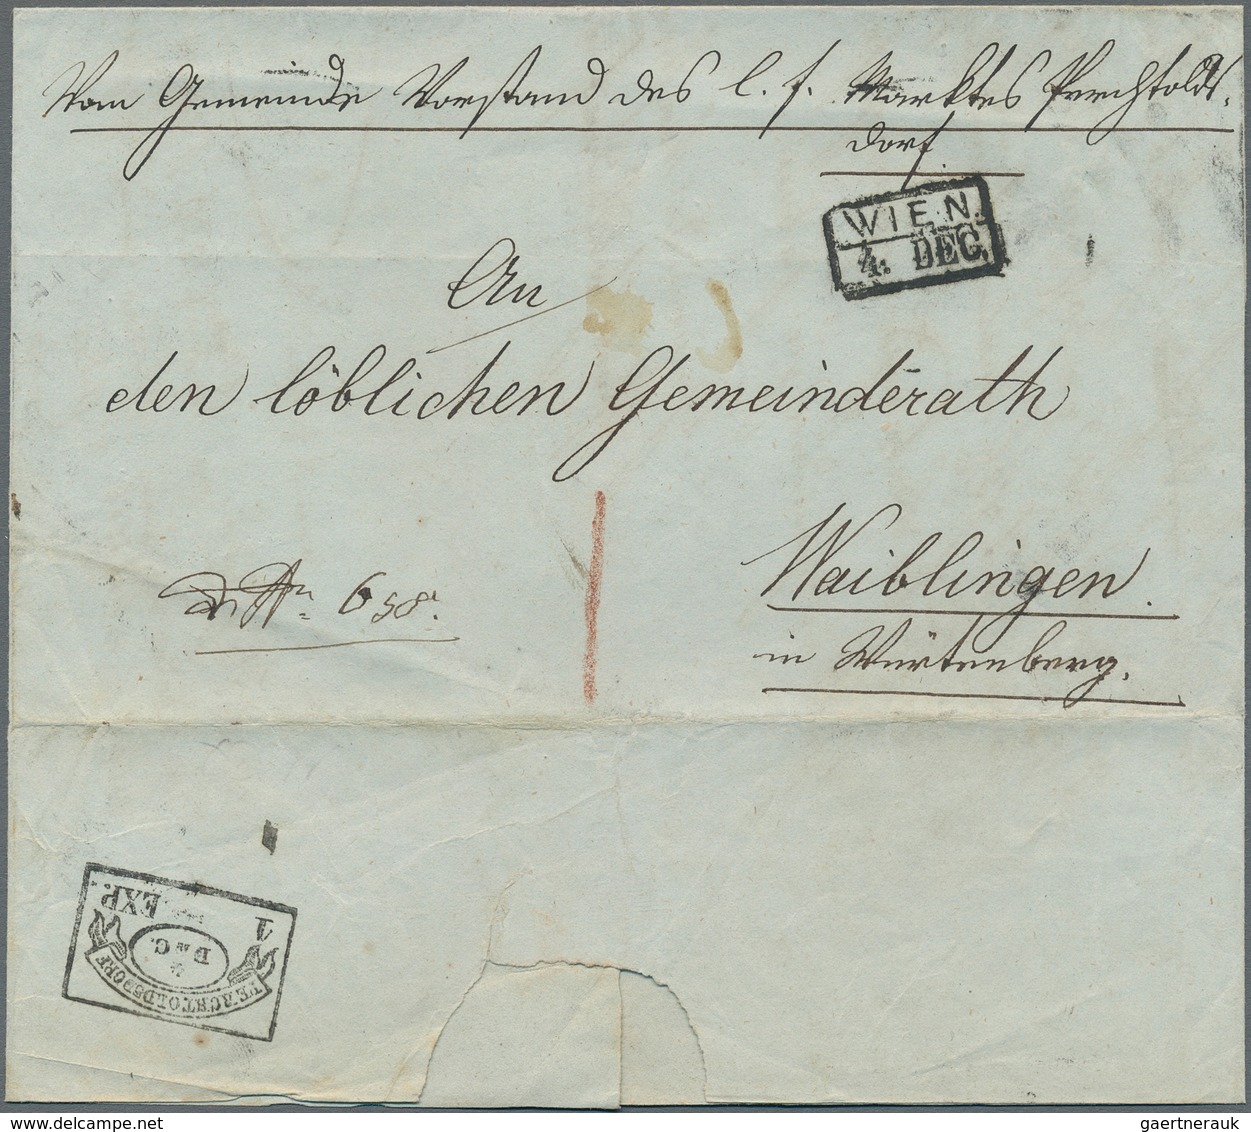 Vom Gemeinde Vorstand des l. f. Marktes Perchtolds-
dorf
WIEN.
4. DEC.
An
den löblichen Gemeinderath
Waiblingen.
in Würtenberg.
658.
1 EXP.
DEC.
PERCHTOLDSDORF
gaertnerauk